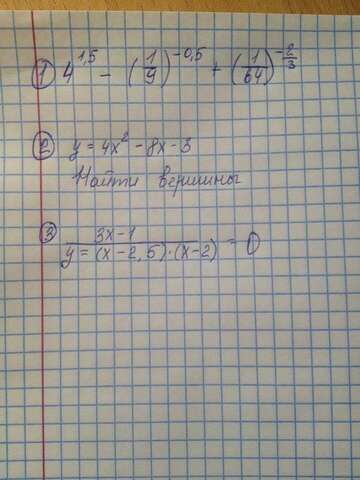 ① 4^1,5 - (1/9)^-0,5 + (1/64)^-2/3
② y = 4x² - 8x - 3
Найти вершины
③ 3x - 1
y = (x - 2,5) · (x - 2) = 0